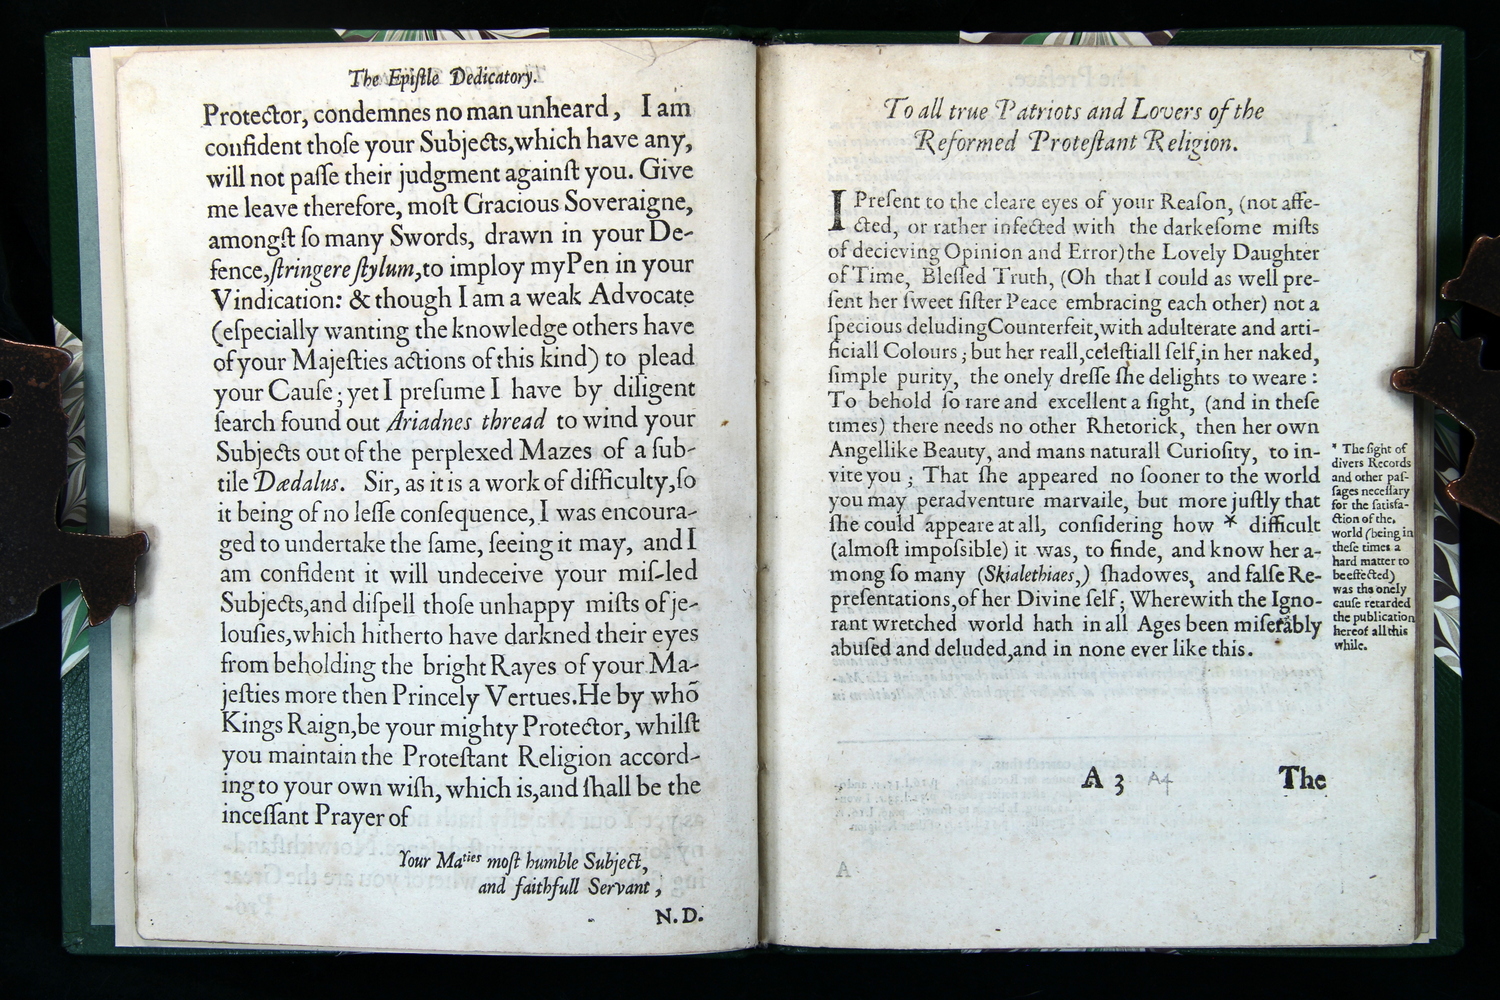 The Epiſtle Dedicatory.
Protector, condemnes no man unheard, I am
confident thoſe your Subjects, which have any,
will not paſſe their judgment againſt you. Give
me leave therefore, moſt Gracious Soveraigne,
amongſt ſo many Swords, drawn in your De-
fence, ſtringere ſtylum, to imploy my Pen in your
Vindication: & though I am a weak Advocate
(eſpecially wanting the knowledge others have
of your Majeſties actions of this kind) to plead
your Cauſe; yet I preſume I have by diligent
ſearch found out Ariadnes thread to wind your
Subjects out of the perplexed Mazes of a ſub-
tile Dædalus. Sir, as it is a work of difficulty, ſo
it being of no leſſe conſequence, I was encoura-
ged to undertake the ſame, ſeeing it may, and I
am confident it will undeceive your miſ-led
Subjects, and diſpell thoſe unhappy miſts of je-
louſies, which hitherto have darkned their eyes
from beholding the bright Rayes of your Ma-
jeſties more then Princely Vertues. He by whõ
Kings Raign, be your mighty Protector, whilſt
you maintain the Proteſtant Religion accord-
ing to your own wiſh, which is, and ſhall be the
inceſſant Prayer of
Your Maties moſt humble Subject,
and faithfull Servant,
N. D.
To all true Patriots and Lovers of the
Reformed Proteſtant Religion.
I Preſent to the cleare eyes of your Reaſon, (not affe-
cted, or rather infected with the darkeſome miſts
of decieving Opinion and Error) the Lovely Daughter
of Time, Bleſſed Truth, (Oh that I could as well pre-
ſent her ſweet ſiſter Peace embracing each other) not a
ſpecious deluding Counterfeit, with adulterate and arti-
ficiall Colours; but her reall, celeſtiall ſelf, in her naked,
ſimple purity, the onely dreſſe ſhe delights to weare:
To behold ſo rare and excellent a ſight, (and in theſe
times) there needs no other Rhetorick, then her own
Angellike Beauty, and mans naturall Curioſity, to in-
vite you; That ſhe appeared no ſooner to the world
you may peradventure marvaile, but more juſtly that
ſhe could appeare at all, conſidering how * difficult
(almoſt impoſsible) it was, to finde, and know her a-
mong ſo many (Skialethiaes,) ſhadowes, and falſe Re-
preſentations, of her Divine ſelf; Wherewith the Igno-
rant wretched world hath in all Ages been miſerably
abuſed and deluded, and in none ever like this.
* The ſight of
divers Records
and other paſ-
ſages neceſſary
for the ſatisfa-
ction of the,
world (being in
theſe times a
hard matter to
be effected)
was the onely
cauſe retarded
the publication
hereof all this
while.
A 3 A4 The